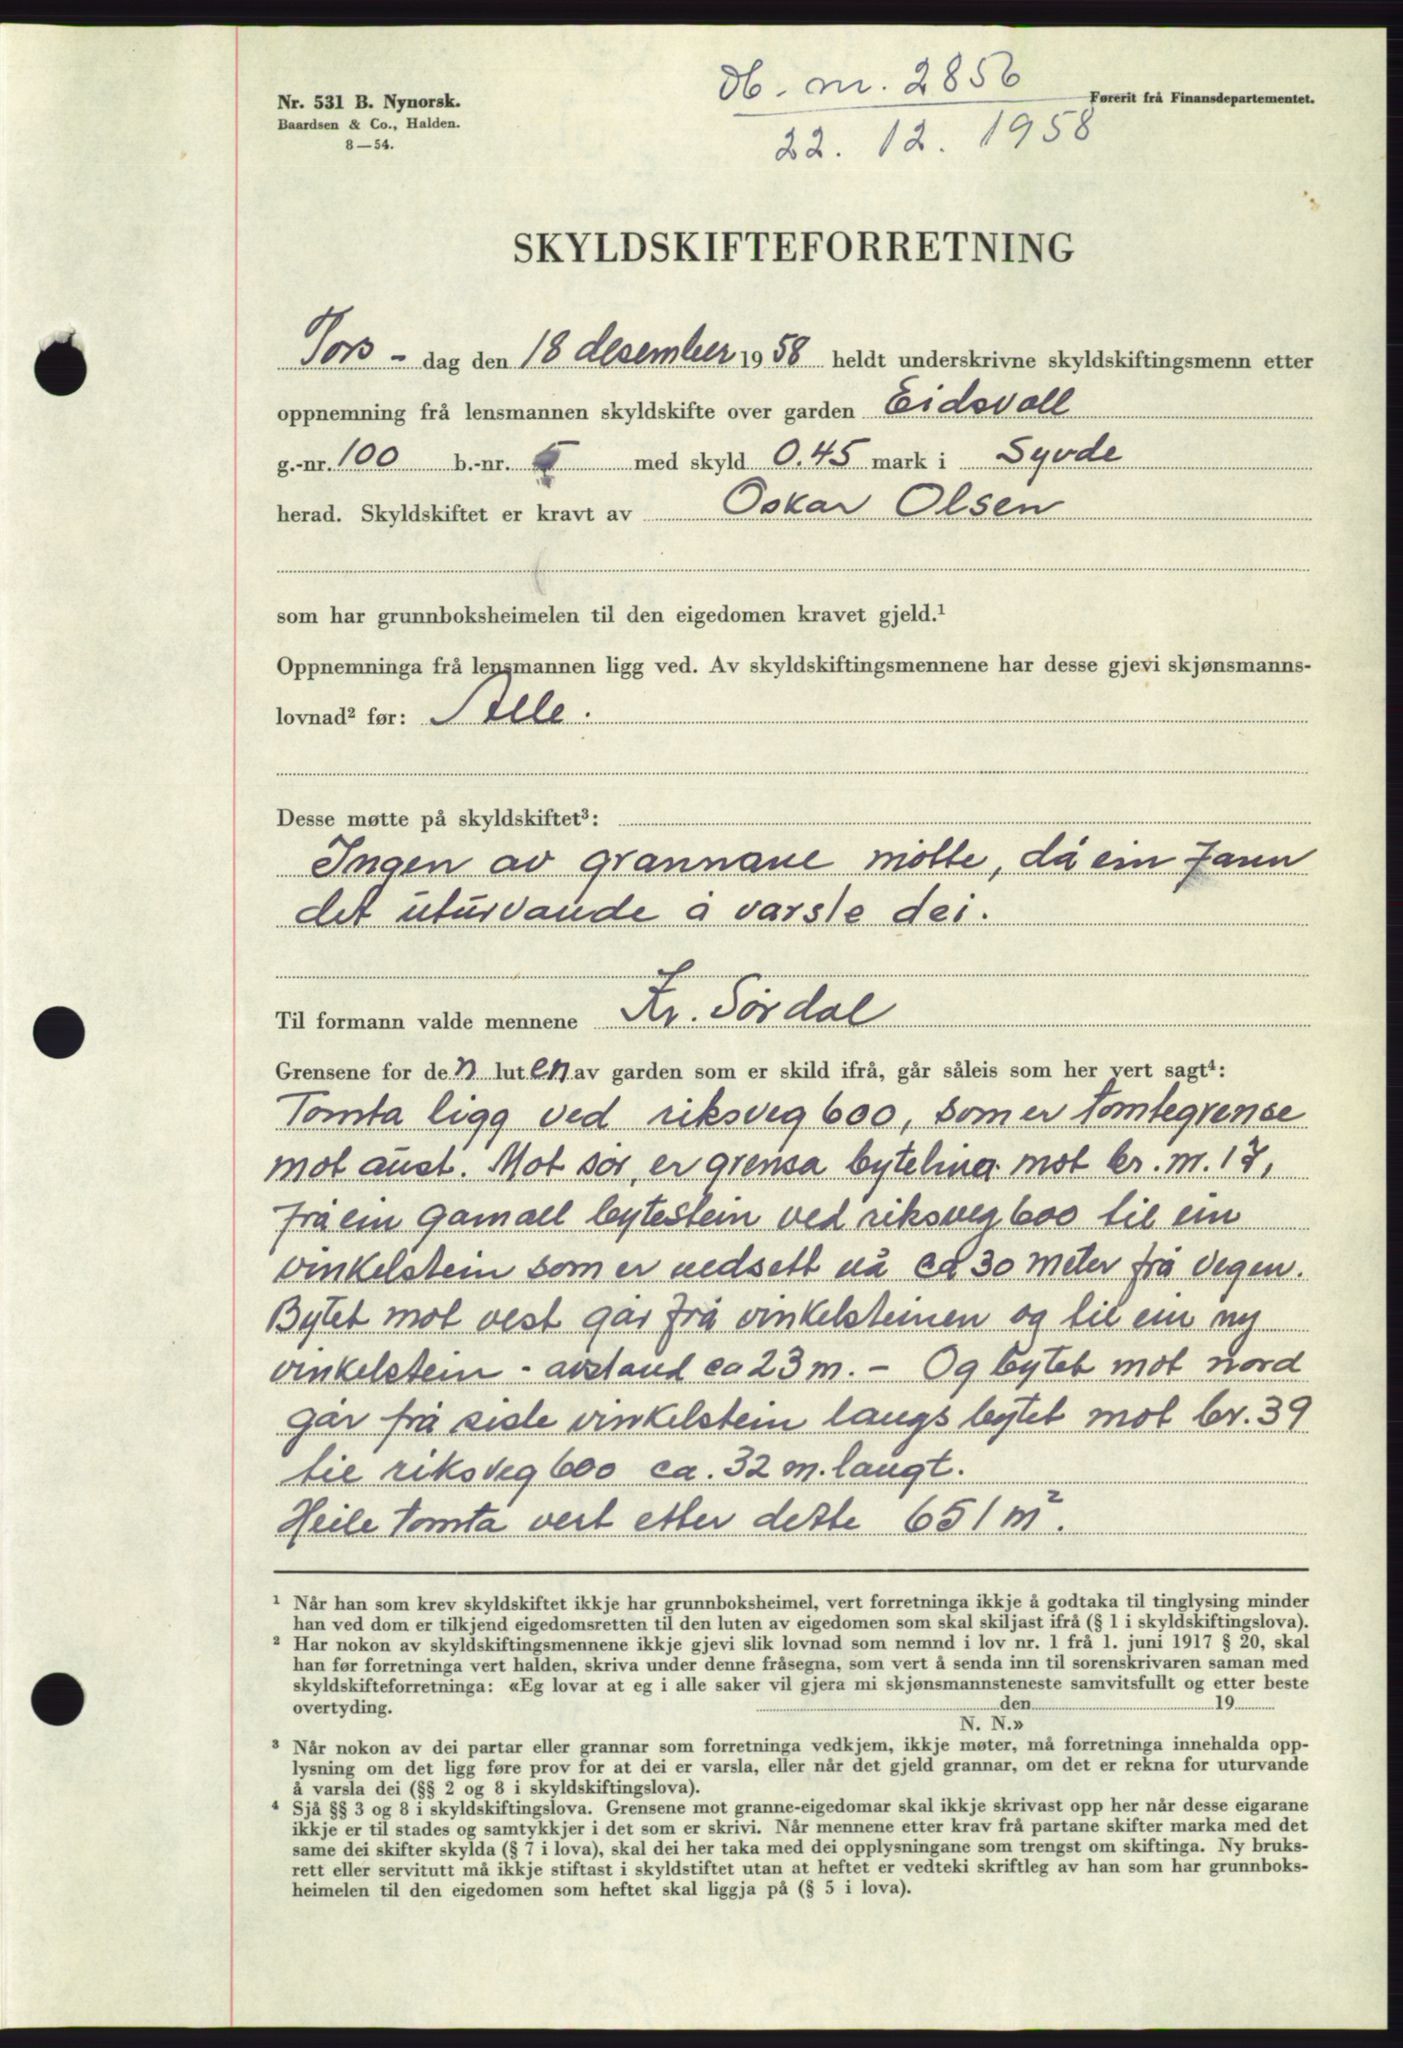 Nr. 531 B. Nynorsk.
Baardsen & Co., Halden.
8—54.
Db. nr. 2856
22. 12. 1958
Førerit frå Finansdepartementet.
SKYLDSKIFTEFORRETNING
Tors - dag den 18 desember 1958 heldt underskrivne skyldskiftingsmenn etter
oppnemning frå lensmannen skyldskifte over garden Eidsvoll
g.-nr. 100 b.-nr. 5 med skyld 0.45 mark i Syvde
herad. Skyldskiftet er kravt av Oskar Olsen
som har grunnboksheimelen til den eigedomen kravet gjeld.¹
Oppnemninga frå lensmannen ligg ved. Av skyldskiftingsmennene har desse gjevi skjønsmanns-
lovnad² før: Alle.
Desse møtte på skyldskiftet³:
Ingen av grannane møtte, då ein fann
det uturvande å varsle dei.
Til formann valde mennene Kr. Sørdal
Grensene for den luten av garden som er skild ifrå, går såleis som her vert sagt⁴:
Tomta ligg ved riksveg 600, som er tomtegrense
mot aust. Mot sør, er grensa bytelina mot br. nr. 17,
frå ein gamall bytestein ved riksveg 600 til ein
vinkelstein som er nedsett nå ca 30 meter frå vegen.
Bytet mot vest går frå vinkelsteinen og til ein ny
vinkelstein - avstand ca 23 m. - Og bytet mot nord
går frå siste vinkelstein langs bytet mot br. 39
til riksveg 600 ca. 32 m. langt.
Heile tomta vert etter dette 651 m².
¹ Når han som krev skyldskiftet ikkje har grunnboksheimel, vert forretninga ikkje å godtaka til tinglysing minder
han ved dom er tilkjend eigedomsretten til den luten av eigedomen som skal skiljast ifrå (§ 1 i skyldskiftingslova).
² Har nokon av skyldskiftingsmennene ikkje gjevi slik lovnad som nemnd i lov nr. 1 frå 1. juni 1917 § 20, skal
han før forretninga vert halden, skriva under denne fråsegna, som vert å senda inn til sorenskrivaren saman med
skyldskifteforretninga: «Eg lovar at eg i alle saker vil gjera mi skjønsmannsteneste samvitsfullt og etter beste
overtyding. den 19
N. N.»
³ Når nokon av dei partar eller grannar som forretninga vedkjem, ikkje møter, må forretninga innehalda opp-
lysning om det ligg føre prov for at dei er varsla, eller når det gjeld grannar, om det er rekna for uturvande
å varsla dei (§§ 2 og 8 i skyldskiftingslova).
⁴ Sjå §§ 3 og 8 i skyldskiftingslova. Grensene mot granne-eigedomar skal ikkje skrivast opp her når desse eigarane
ikkje er til stades og samtykkjer i det som er skrivi. Når mennene etter krav frå partane skifter marka med det
same dei skifter skylda (§ 7 i lova), skal dei her taka med dei opplysningane som trengst om skiftinga. Ny bruks-
rett eller servitutt må ikkje stiftast i skyldstiftet utan at heftet er vedteki skriftleg av han som har grunnboks-
heimelen til den eigedomen som heftet skal liggja på (§ 5 i lova).